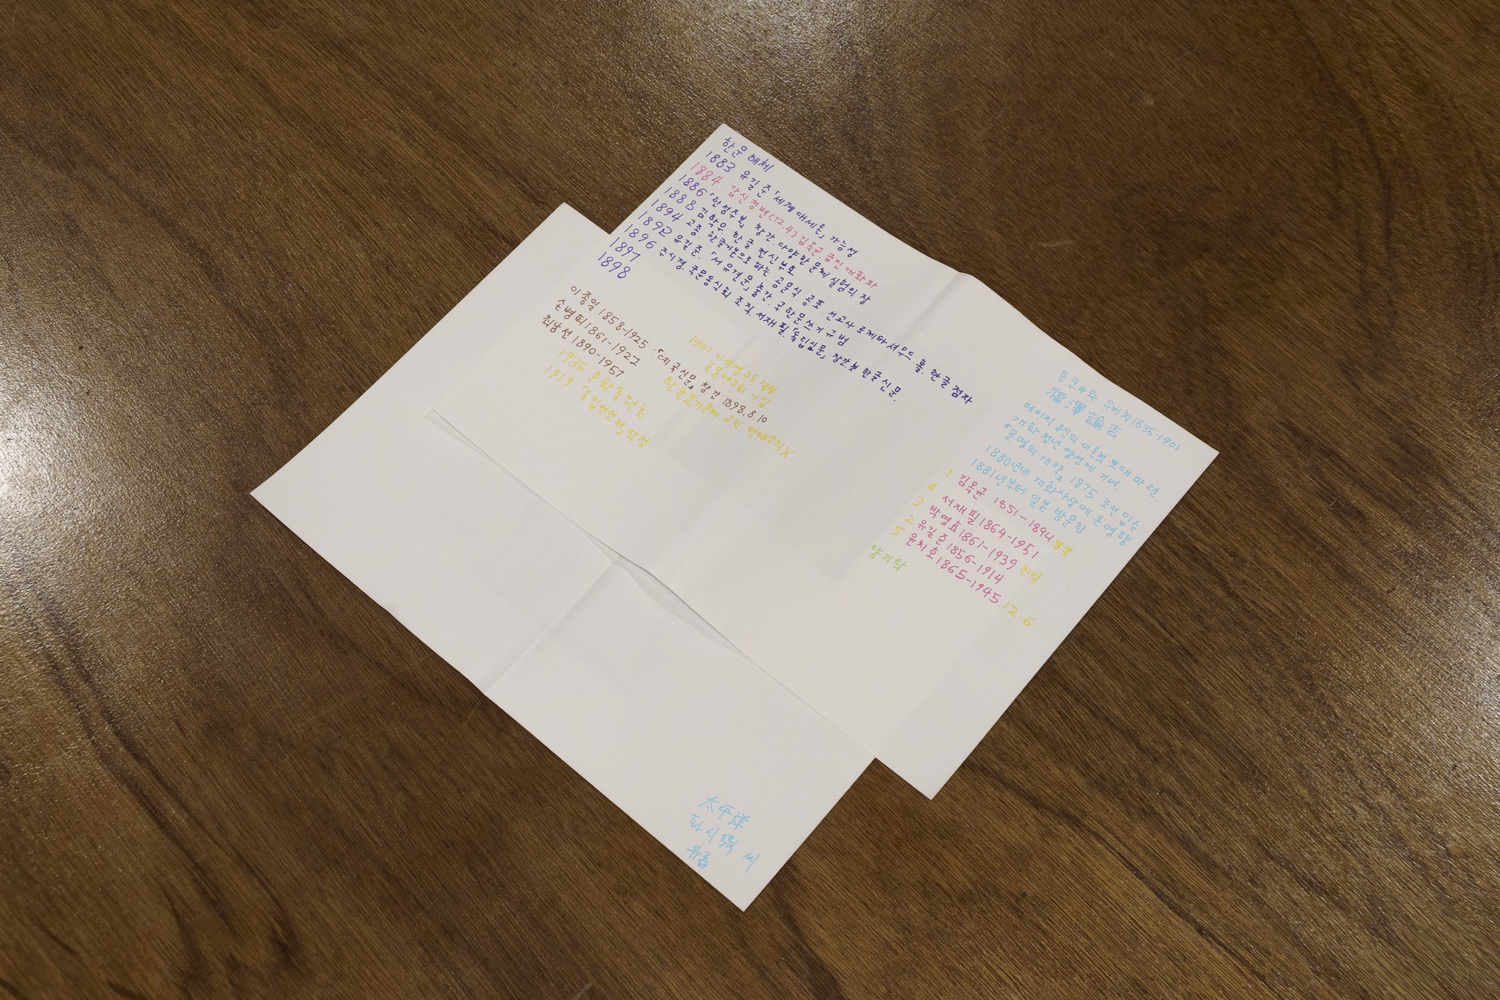 한문 해체
1883 유길준 「세계대세론」 가능성
1884 갑신정변(12.4) 김옥균 급진개화파
1886 「한성주보」 창간. 다양한 문체 실험의 장
1888 김학우. 한글 전신부호
1894 고종 한글 기본으로 하는 공문식 공포. 선교사 로제타 셔우드 홀. 한글 점자
1892 유길준. 「서유견문」 출간. 국한문쓰기 규범
1896 주시경. 국문동식회 조직. 서재필. 「독립신문」 창간 첫 한글신문.
1897
1898
이종일 1858-1925 · 「뎨국신문」 창간 1898.8.10
손병희 1861-1922
최남선 1890-1957
1935 문화동원론
1919 「독립선언서」 작성
1907
후쿠자와 유키치 1835-1901
福澤諭吉
메이지 유신의 이론적 토대 마련
개화 청년 양성에 기여
「문명의 개략」 1875 조선 입수
1880년대 개화사상에 큰 영향
1881년부터 일본 방문한
1 김옥균 1851-1894 암살
4 서재필 1864-1951
3 박영효 1861-1939 친일
2 유길준 1856-1914
5 윤치호 1865-1945.12.6
양기탁
太平洋
파시픽 씨
유흠